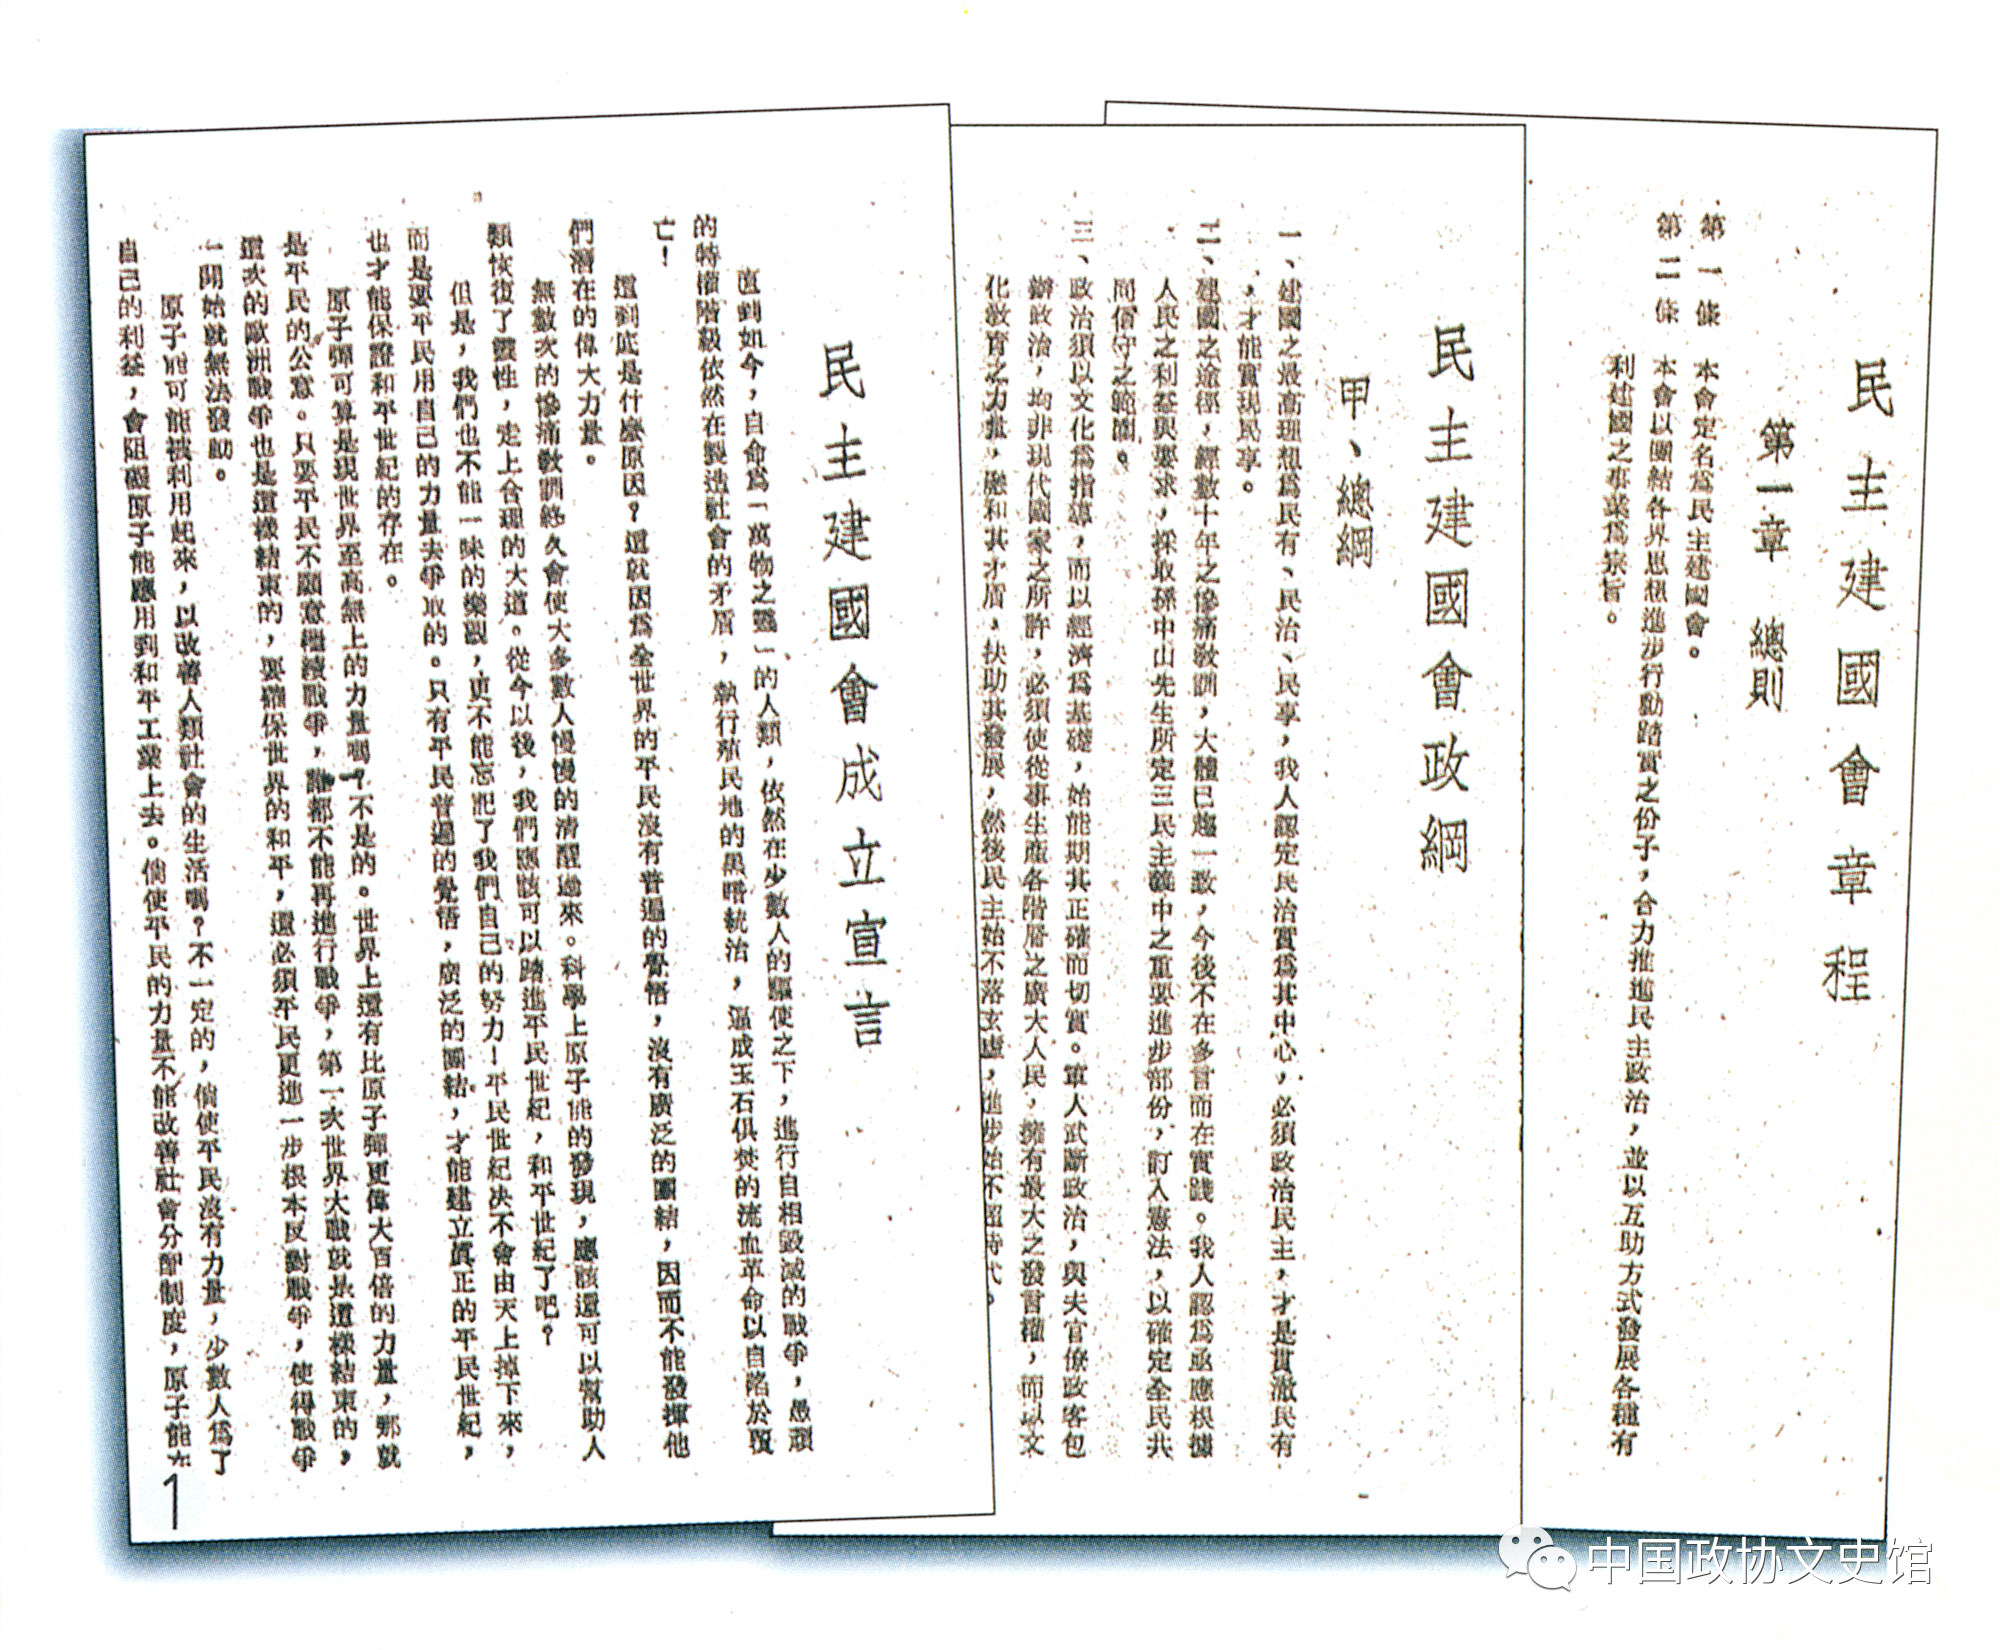 民主建國會章程
第一章　總則
第一條　本會定名爲民主建國會。
第二條　本會以團結各界思想進步行動踏實之份子，合力推進民主政治，並以互助方式發展各種有
利建國之事業爲宗旨。
民主建國會政綱
甲、總綱
一、建國之最高理想爲民有、民治、民享，我人認定民治實爲其中心，必須政治民主，才是貫澈民有
，才能實現民享。
二、建國之途徑，經數十年之慘痛敎訓，大體已趨一致，今後不在多言而在實踐。我人認爲亟應根據
人民之利益與要求，採取孫中山先生所定三民主義中之重要進步部份，訂入憲法，以確定全民共
同信守之範圍。
三、政治須以文化爲指導，而以經濟爲基礎，始能期其正確而切實。軍人武斷政治，與夫官僚政客包
辦政治，均非現代國家之所許，必須使從事生產各階層之廣大人民，擁有最大之發言權，而以文
化敎育之力量，融和其矛盾，扶助其發展，然後民主始不落玄虛，進步始不超時代。
民主建國會成立宣言
直到如今，自命爲「萬物之靈」的人類，依然在少數人的驅使之下，進行自相毀滅的戰爭，愚頑
的特權階級依然在製造社會的矛盾，執行殖民地的黑暗統治，逼成玉石俱焚的流血革命以自陷於覆
亡！
這到底是什麼原因？這就因爲全世界的平民沒有普遍的覺悟，沒有廣泛的團結，因而不能發揮他
們潛在的偉大力量。
無數次的慘痛敎訓終久會使大多數人慢慢的淸醒過來。科學上原子能的發現，應該還可以幫助人
類恢復了靈性，走上合理的大道。從今以後，我們應該可以踏進平民世紀，和平世紀了吧？
但是，我們也不能一味的樂觀，更不能忘記了我們自己的努力！平民世紀决不會由天上掉下來，
而是要平民用自己的力量去爭取的。只有平民普遍的覺悟，廣泛的團結，才能建立眞正的平民世紀，
也才能保證和平世紀的存在。
原子彈可算是現世界至高無上的力量嗎？不是的。世界上還有比原子彈更偉大百倍的力量，那就
是平民的公意。只要平民不願意繼續戰爭，誰都不能再進行戰爭，第一次世界大戰就是這樣結束的，
這次的歐洲戰爭也是這樣結束的，要確保世界的和平，還必須平民更進一步根本反對戰爭，使得戰爭
一開始就無法發動。
原子能可能被利用起來，以改善人類社會的生活嗎？不一定的，倘使平民沒有力量，少數人爲了
自己的利益，會阻礙原子能應用到和平工業上去。倘使平民的力量不能改善社會分配制度，原子能在
1
中国政协文史馆